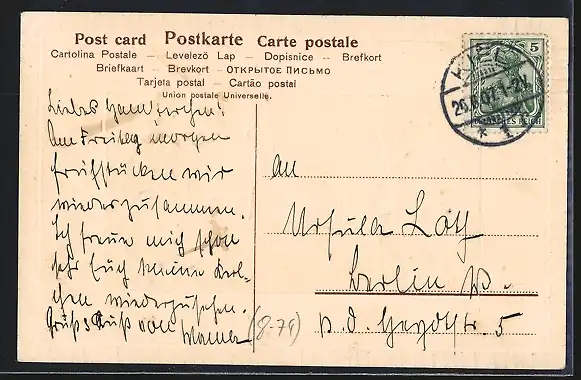 Post card Postkarte Carte postale
Cartolina Postale – Levelező Lap – Dopisnice – Brefkort
Briefkaart – Brevkort – ОТКРЫТОЕ ПИСЬМО
Tarjeta postal – Cartão postal
Union postale Universelle.
5
KIEL
1-2N.
* 1
Liebes
Am Freitag morgen
frühstücken wir
wieder zusammen.
Ich freue mich schon
sehr Euch meine Kerl-
chen wiederzusehen.
Gruß & Kuß von
Mama
(8-79)
An
Ursula Loth
Berlin W.
v. d. Heydtstr. 5